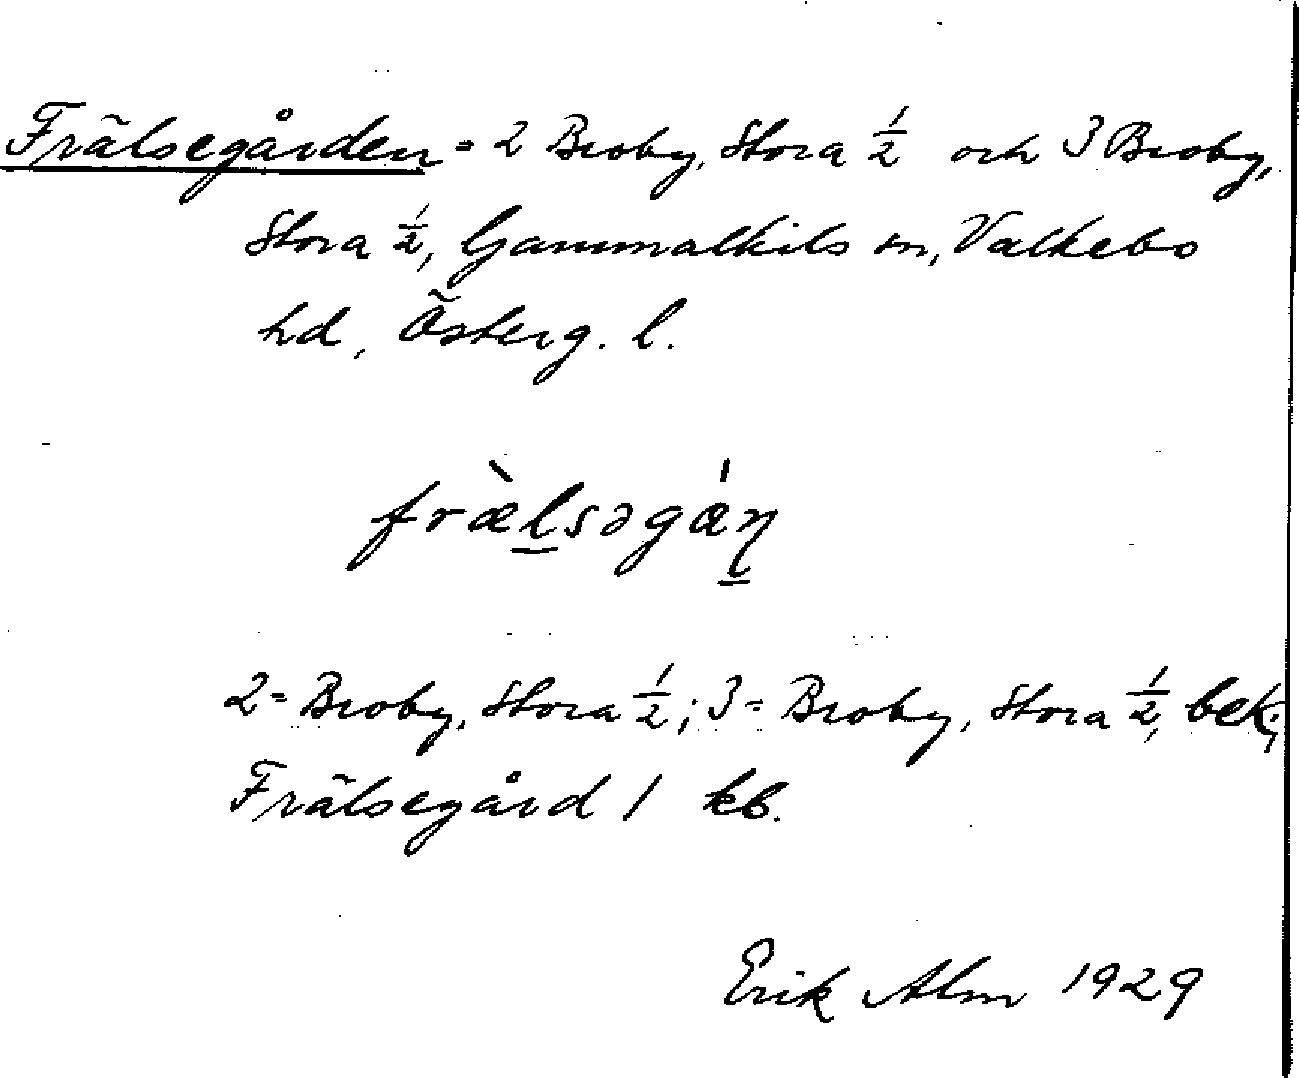 Frälsegården = 2 Broby, Stora ½ och 3 Broby,
Stora ½, Gammalkils sn, Valkebo
hd, Österg. l.
fræ̀l̲səgǽɳ̲
2 = Broby, Stora ½; 3 = Broby, Stora ½, bek;
Frälsegård 1 kb.
Erik Alm 1929